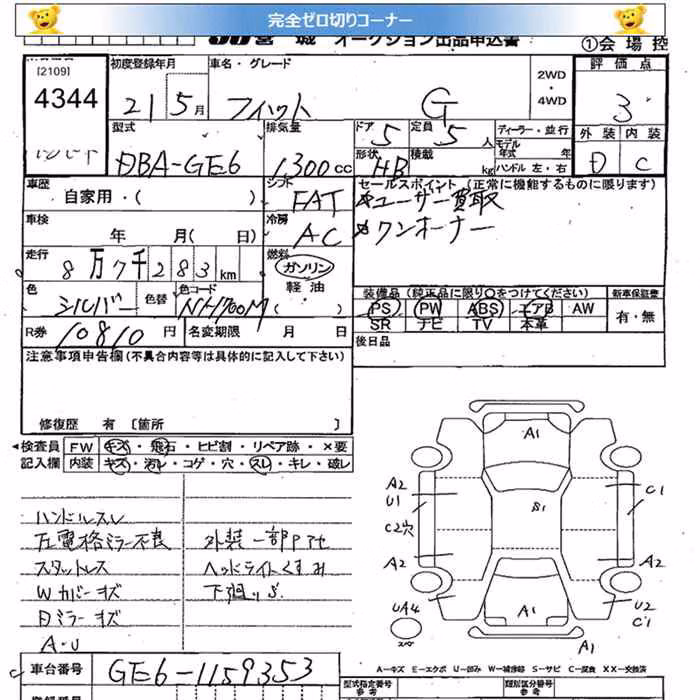 完全ゼロ切りコーナー
JU宮城 オークション出品申込書
①会場控
[2109]
4344
初度登録年月
21 5月
車名・グレード
フィット G
2WD
・
4WD
評価点
3
外装 内装
D C
型式
DBA-GE6
排気量
1300cc
ドア 5
定員 5人
形状 HB
積載 kg
ディーラー・並行
モデル年式 年
ハンドル 左・右
車歴
自家用・( )
シフト
FAT
セールスポイント (正常に機能するものに限ります)
*ユーザー買取
*ワンオーナー
車検
年 月( 日)
冷房
AC
走行
8万7千283km
燃料
ガソリン
軽油・
( )
色
シルバー
色替
色コード
NH700M
装備品 (純正品に限り○をつけてください)
PS PW ABS エアB AW
SR ナビ TV 本革
新車保証書
有・無
R券 10810円
名変期限 月 日
後日品
注意事項申告欄(不具合内容等は具体的に記入して下さい)
修復歴 有 [箇所 ]
検査員記入欄
FW キズ・飛石・ヒビ割・リペア跡・×要
内装 キズ・汚レ・コゲ・穴・スレ・キレ・破レ
ハンドルスレ
左電格ミラー不良
外装一部Pアセ
スタットレス
ヘッドライトくすみ
Wカバーキズ
下廻りS
日ミラーキズ
A・U
A1
A2
U1
S1
C1
C2穴
A2
A2
UA4
A1
U2
C1
A1
A-キズ E-エクボ U-凹み W-補修跡 S-サビ C-腐食 XX-交換済
車台番号 GE6-1159353
登録番号
型式指定番号
参考
類別区分番号
参考